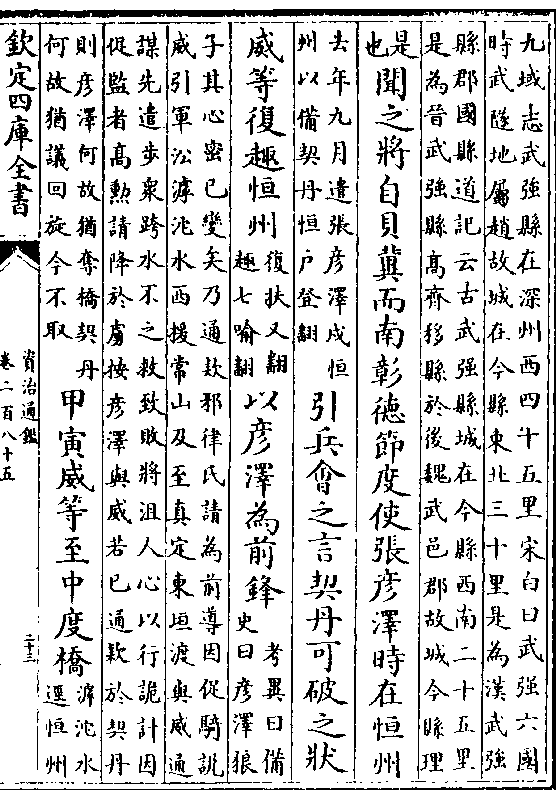 九域志武强縣在深州西四十五里宋白曰武强六國
時武隧地屬趙故城在今縣東北三十里是為漢武强
縣郡國縣道記云古武强縣城在今縣西南二十五里
是為晉武强縣髙齊移縣於後魏武邑郡故城今縣理
是
也
聞之將自貝冀而南彰德節度使張彦澤時在恒州
去年九月遣張彦澤戍恒
州以備契丹恒户登翻
引兵會之言契丹可破之狀
威等復趣恒州
復扶又翻
趣七喻翻
以彦澤為前鋒
考異曰備
史曰彦澤狼
子其心密已變矣乃通欵邪律氏請為前導因促騎説
威引軍㳂滹沱水西援常山及至真定東垣渡與威通
謀先遣步衆跨水不之救致敗將沮人心以行詭計因
促監者髙勲請降於虜按彦澤與威若已通欵於契丹
則彦澤何故猶奪橋契丹
何故猶議回旋今不取
甲寅威等至中度橋
滹沱水
逕恒州
欽定四庫全書
資治通鑑
卷二百八十五
二十三